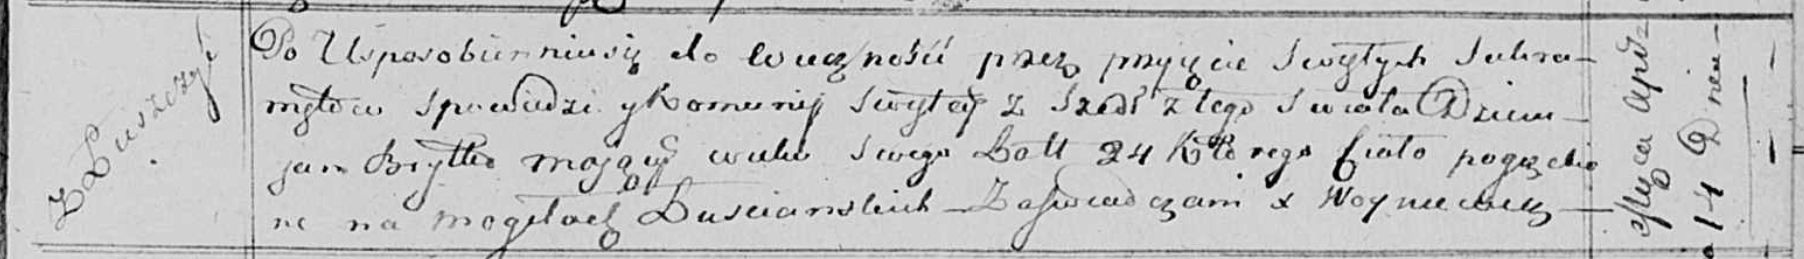 Z Łuszczyc
Po Usposobienniu się do wieczności przez przyięcie Swiętych Sakra-
mętów Spowiedzi y Komunij Swiętej z Szedł z tego Swiata Dziem-
jan Brytko mający wieku Swego Latt 24 Którego Ciało pogrzebio
ne na mogiłach Łusciańskich Zaświadczam x Woyniewicz
Msca Apr
14 Dnia